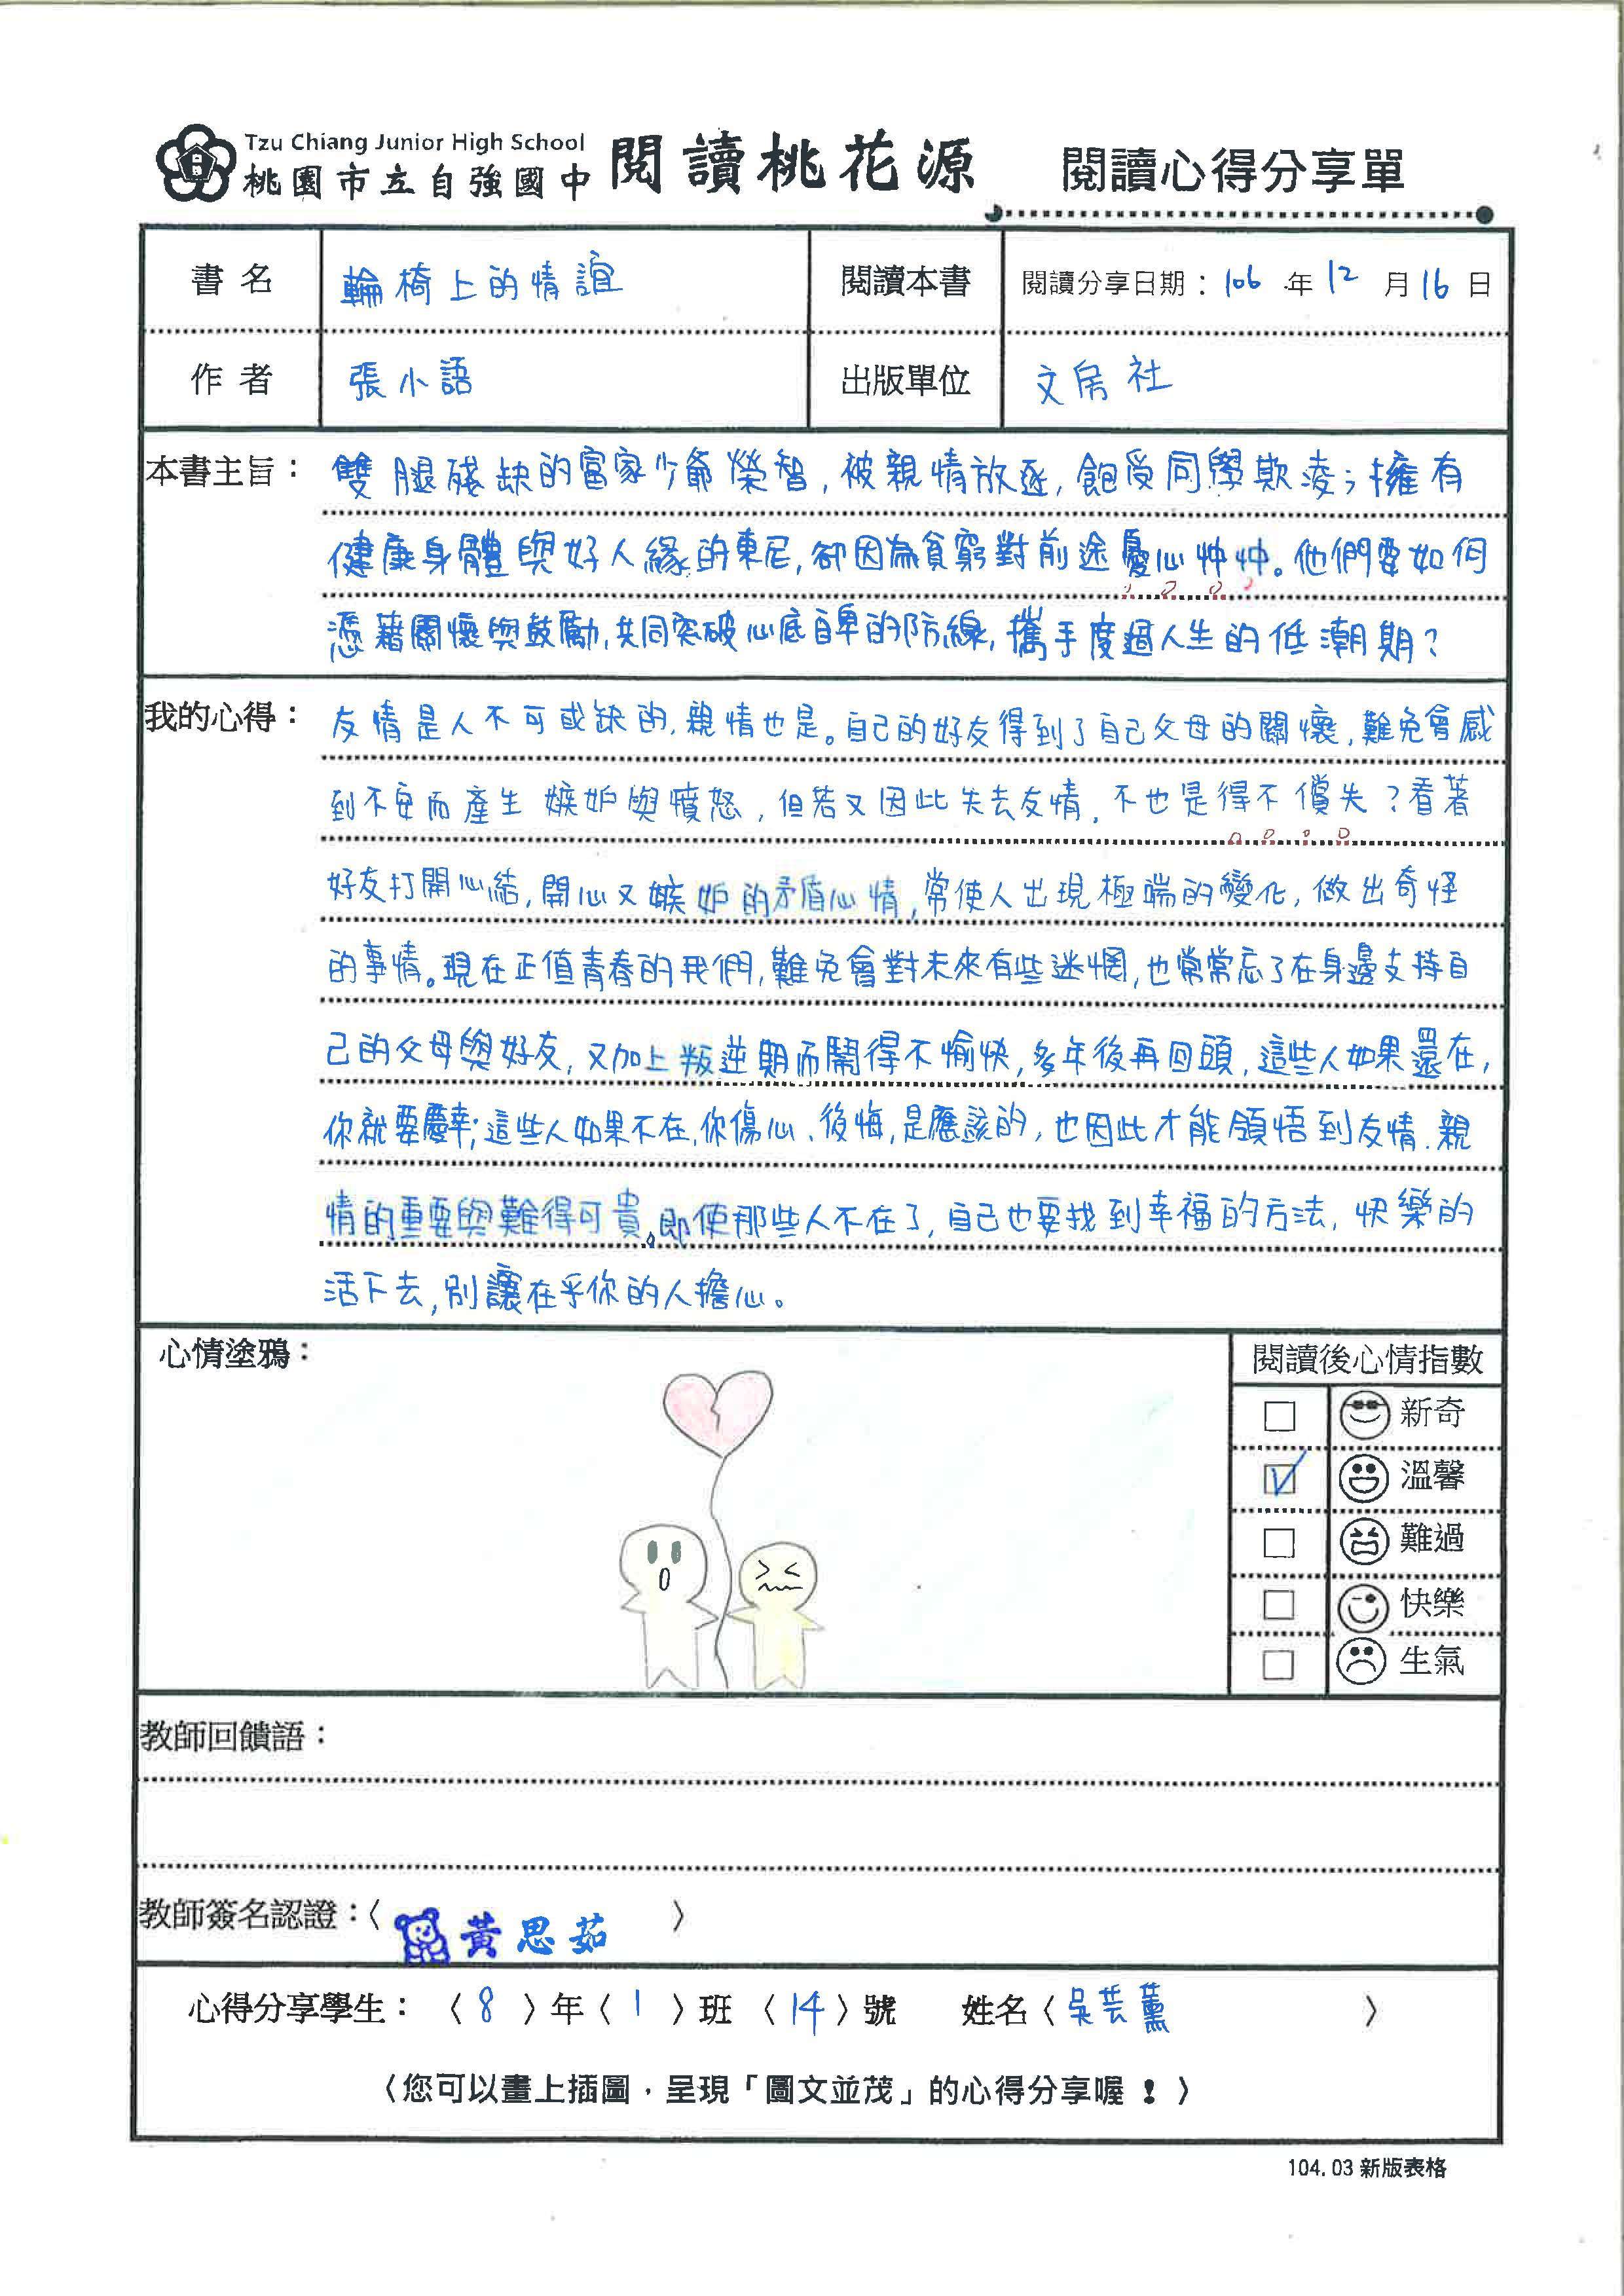 Tzu Chiang Junior High School
桃園市立自強國中 閱讀桃花源 閱讀心得分享單
書名 輪椅上的情誼 閱讀本書 閱讀分享日期：106年12月16日
作者 張小語 出版單位 文房社
本書主旨：雙腿殘缺的富家少爺榮智,被親情放逐,飽受同學欺凌;擁有
健康身體與好人緣的東尼,卻因為貧窮對前途憂心忡忡。他們要如何
憑藉關懷與鼓勵,共同突破心底自卑的防線,攜手度過人生的低潮期?
我的心得：友情是人不可或缺的,親情也是。自己的好友得到了自己父母的關懷,難免會感
到不安而產生嫉妒與憤怒,但若又因此失去友情,不也是得不償失?看著
好友打開心結,開心又嫉妒的矛盾心情,常使人出現極端的變化,做出奇怪
的事情。現在正值青春的我們,難免會對未來有些迷惘,也常常忘了在身邊支持自
己的父母與好友,又加上叛逆期而鬧得不愉快,多年後再回頭,這些人如果還在,
你就要慶幸;這些人如果不在,你傷心、後悔,是應該的,也因此才能領悟到友情、親
情的重要與難得可貴。即使那些人不在了,自己也要找到幸福的方法,快樂的
活下去,別讓在乎你的人擔心。
心情塗鴉： 閱讀後心情指數
新奇
溫馨
難過
快樂
生氣
教師回饋語：
教師簽名認證：〈 黃思茹 〉
心得分享學生：〈8〉年〈1〉班〈14〉號 姓名〈吳芸薰 〉
〈您可以畫上插圖，呈現「圖文並茂」的心得分享喔！〉
104.03新版表格